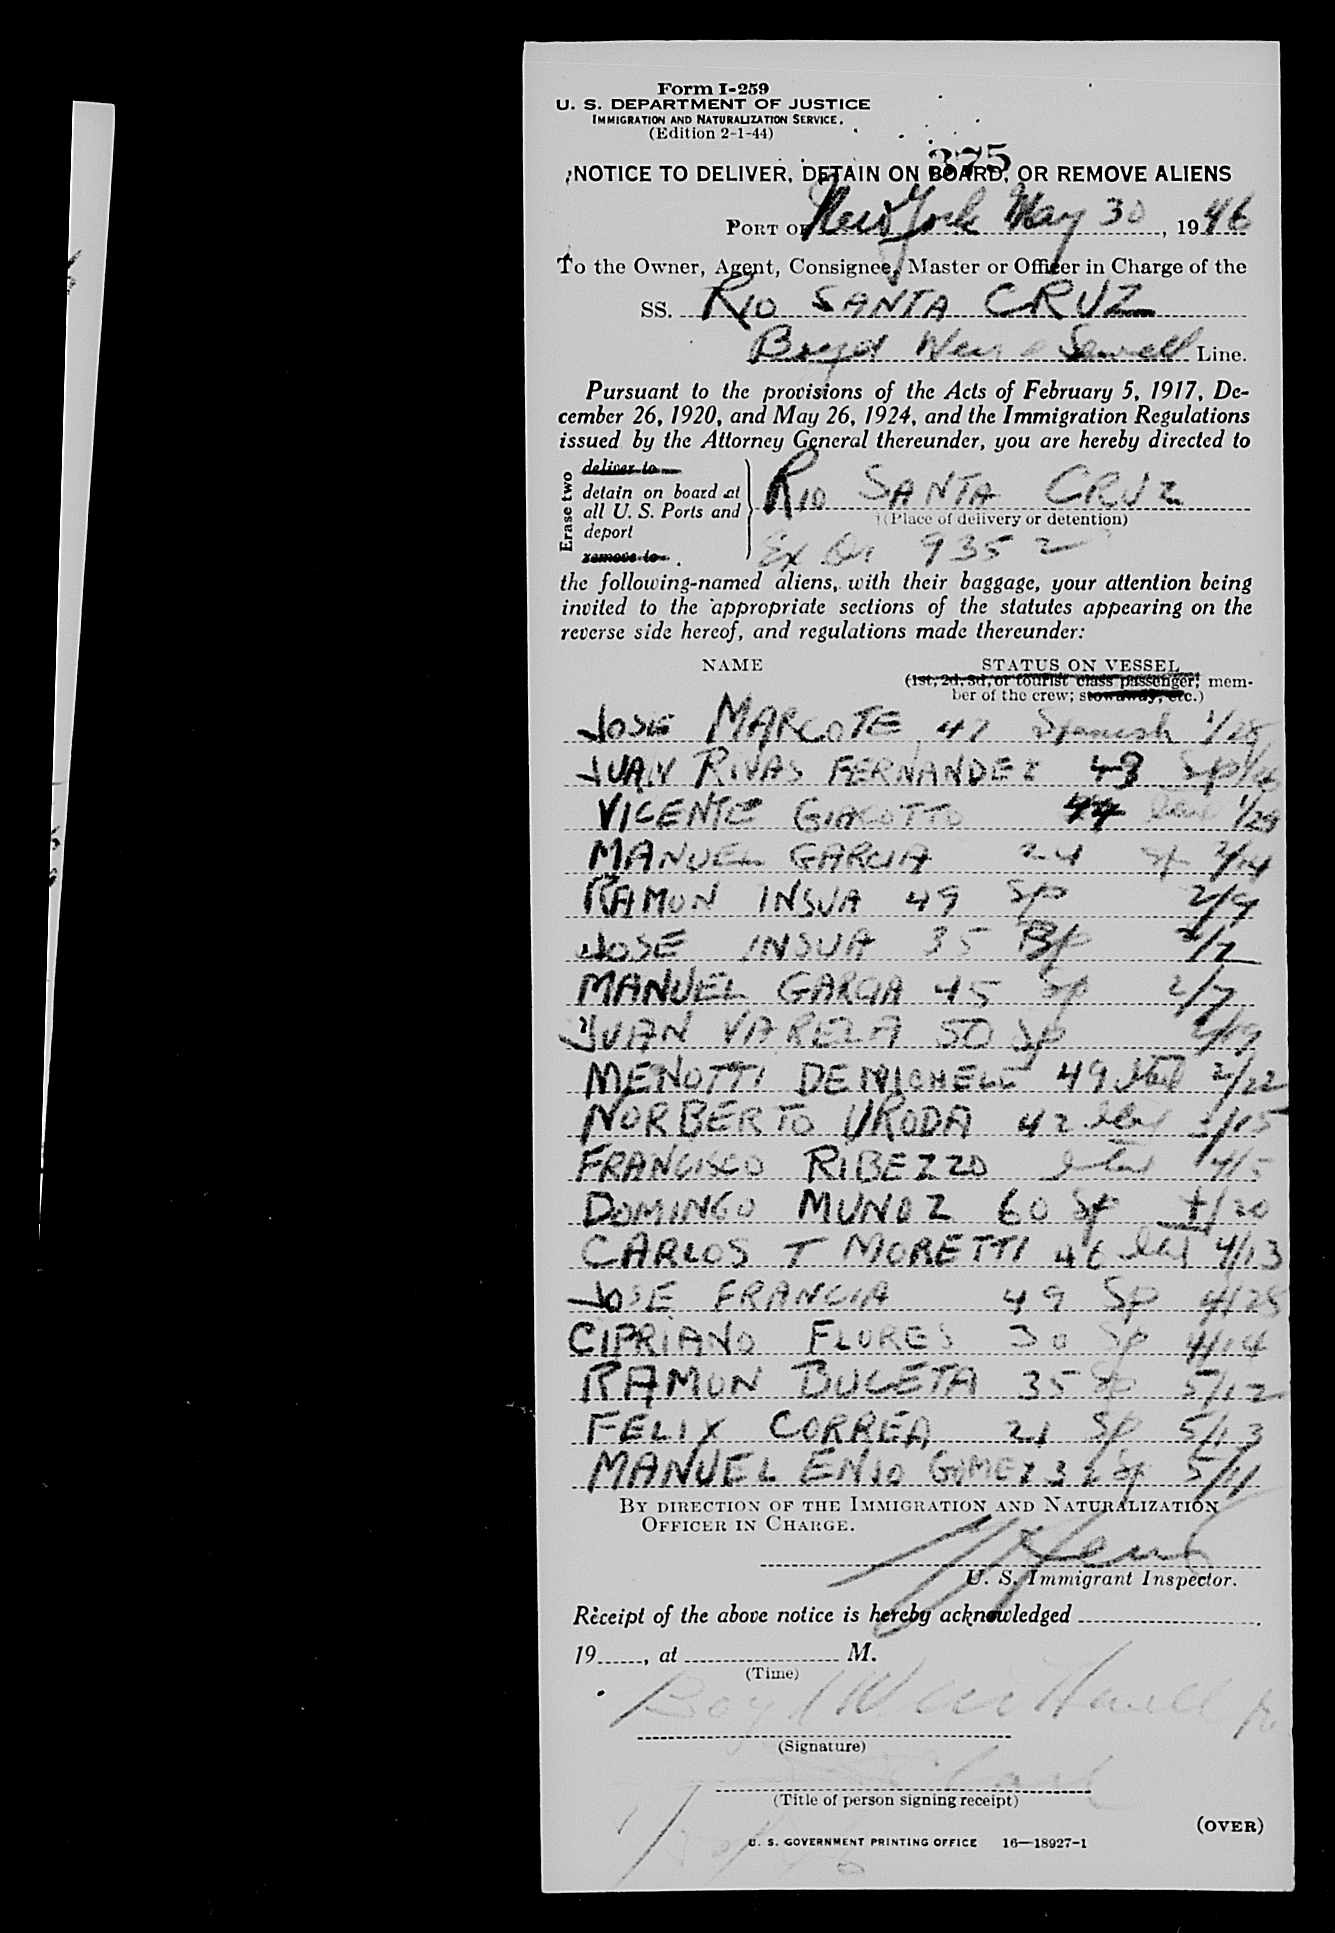 Form I-259
U. S. DEPARTMENT OF JUSTICE
IMMIGRATION AND NATURALIZATION SERVICE.
(Edition 2-1-44)
375
NOTICE TO DELIVER, DETAIN ON BOARD, OR REMOVE ALIENS
PORT OF New York May 30, 1946
To the Owner, Agent, Consignee, Master or Officer in Charge of the
SS. RIO SANTA CRUZ
Boyd Weir & Sewell Line.
Pursuant to the provisions of the Acts of February 5, 1917, De-
cember 26, 1920, and May 26, 1924, and the Immigration Regulations
issued by the Attorney General thereunder, you are hereby directed to
Erase two
deliver to
detain on board at
all U. S. Ports and
deport
remove to
RIO SANTA CRUZ
(Place of delivery or detention)
Ex Or 9352
the following-named aliens, with their baggage, your attention being
invited to the appropriate sections of the statutes appearing on the
reverse side hereof, and regulations made thereunder:
NAME STATUS ON VESSEL
(1st, 2d, 3d, or tourist class passenger; mem-
ber of the crew; stowaway, etc.)
JOSE MARCOTE 47 Spanish 1/25
JUAN RIVAS FERNANDEZ 48 Sp
VICENTE GIACOTTO 44 Ital 1/29
MANUEL GARCIA 24 Sp 2/14
RAMON INSUA 49 Sp 2/9
JOSE INSUA 35 Sp
MANUEL GARCIA 45 Sp 2/7
JUAN VARELA 50 Sp 2/19
MENOTTI DEMICHELI 49 Ital 2/22
NORBERTO URODA 42 Ital
FRANCISCO RIBEZZO Ital 4/5
DOMINGO MUNOZ 60 Sp
CARLOS T MORETTI 46 Ital 4/13
JOSE FRANCIA 49 Sp 4/25
CIPRIANO FLORES 30 Sp 4/14
RAMON BUCETA 35 Sp 5/12
FELIX CORREA 21 Sp 5/13
MANUEL ENJO GOMEZ 32 Sp 5/11
BY DIRECTION OF THE IMMIGRATION AND NATURALIZATION
OFFICER IN CHARGE.
U. S. Immigrant Inspector.
Receipt of the above notice is hereby acknowledged
19 , at M.
(Time)
Boyd Weir
(Signature)
(Title of person signing receipt)
(OVER)
U. S. GOVERNMENT PRINTING OFFICE 16—18927-1